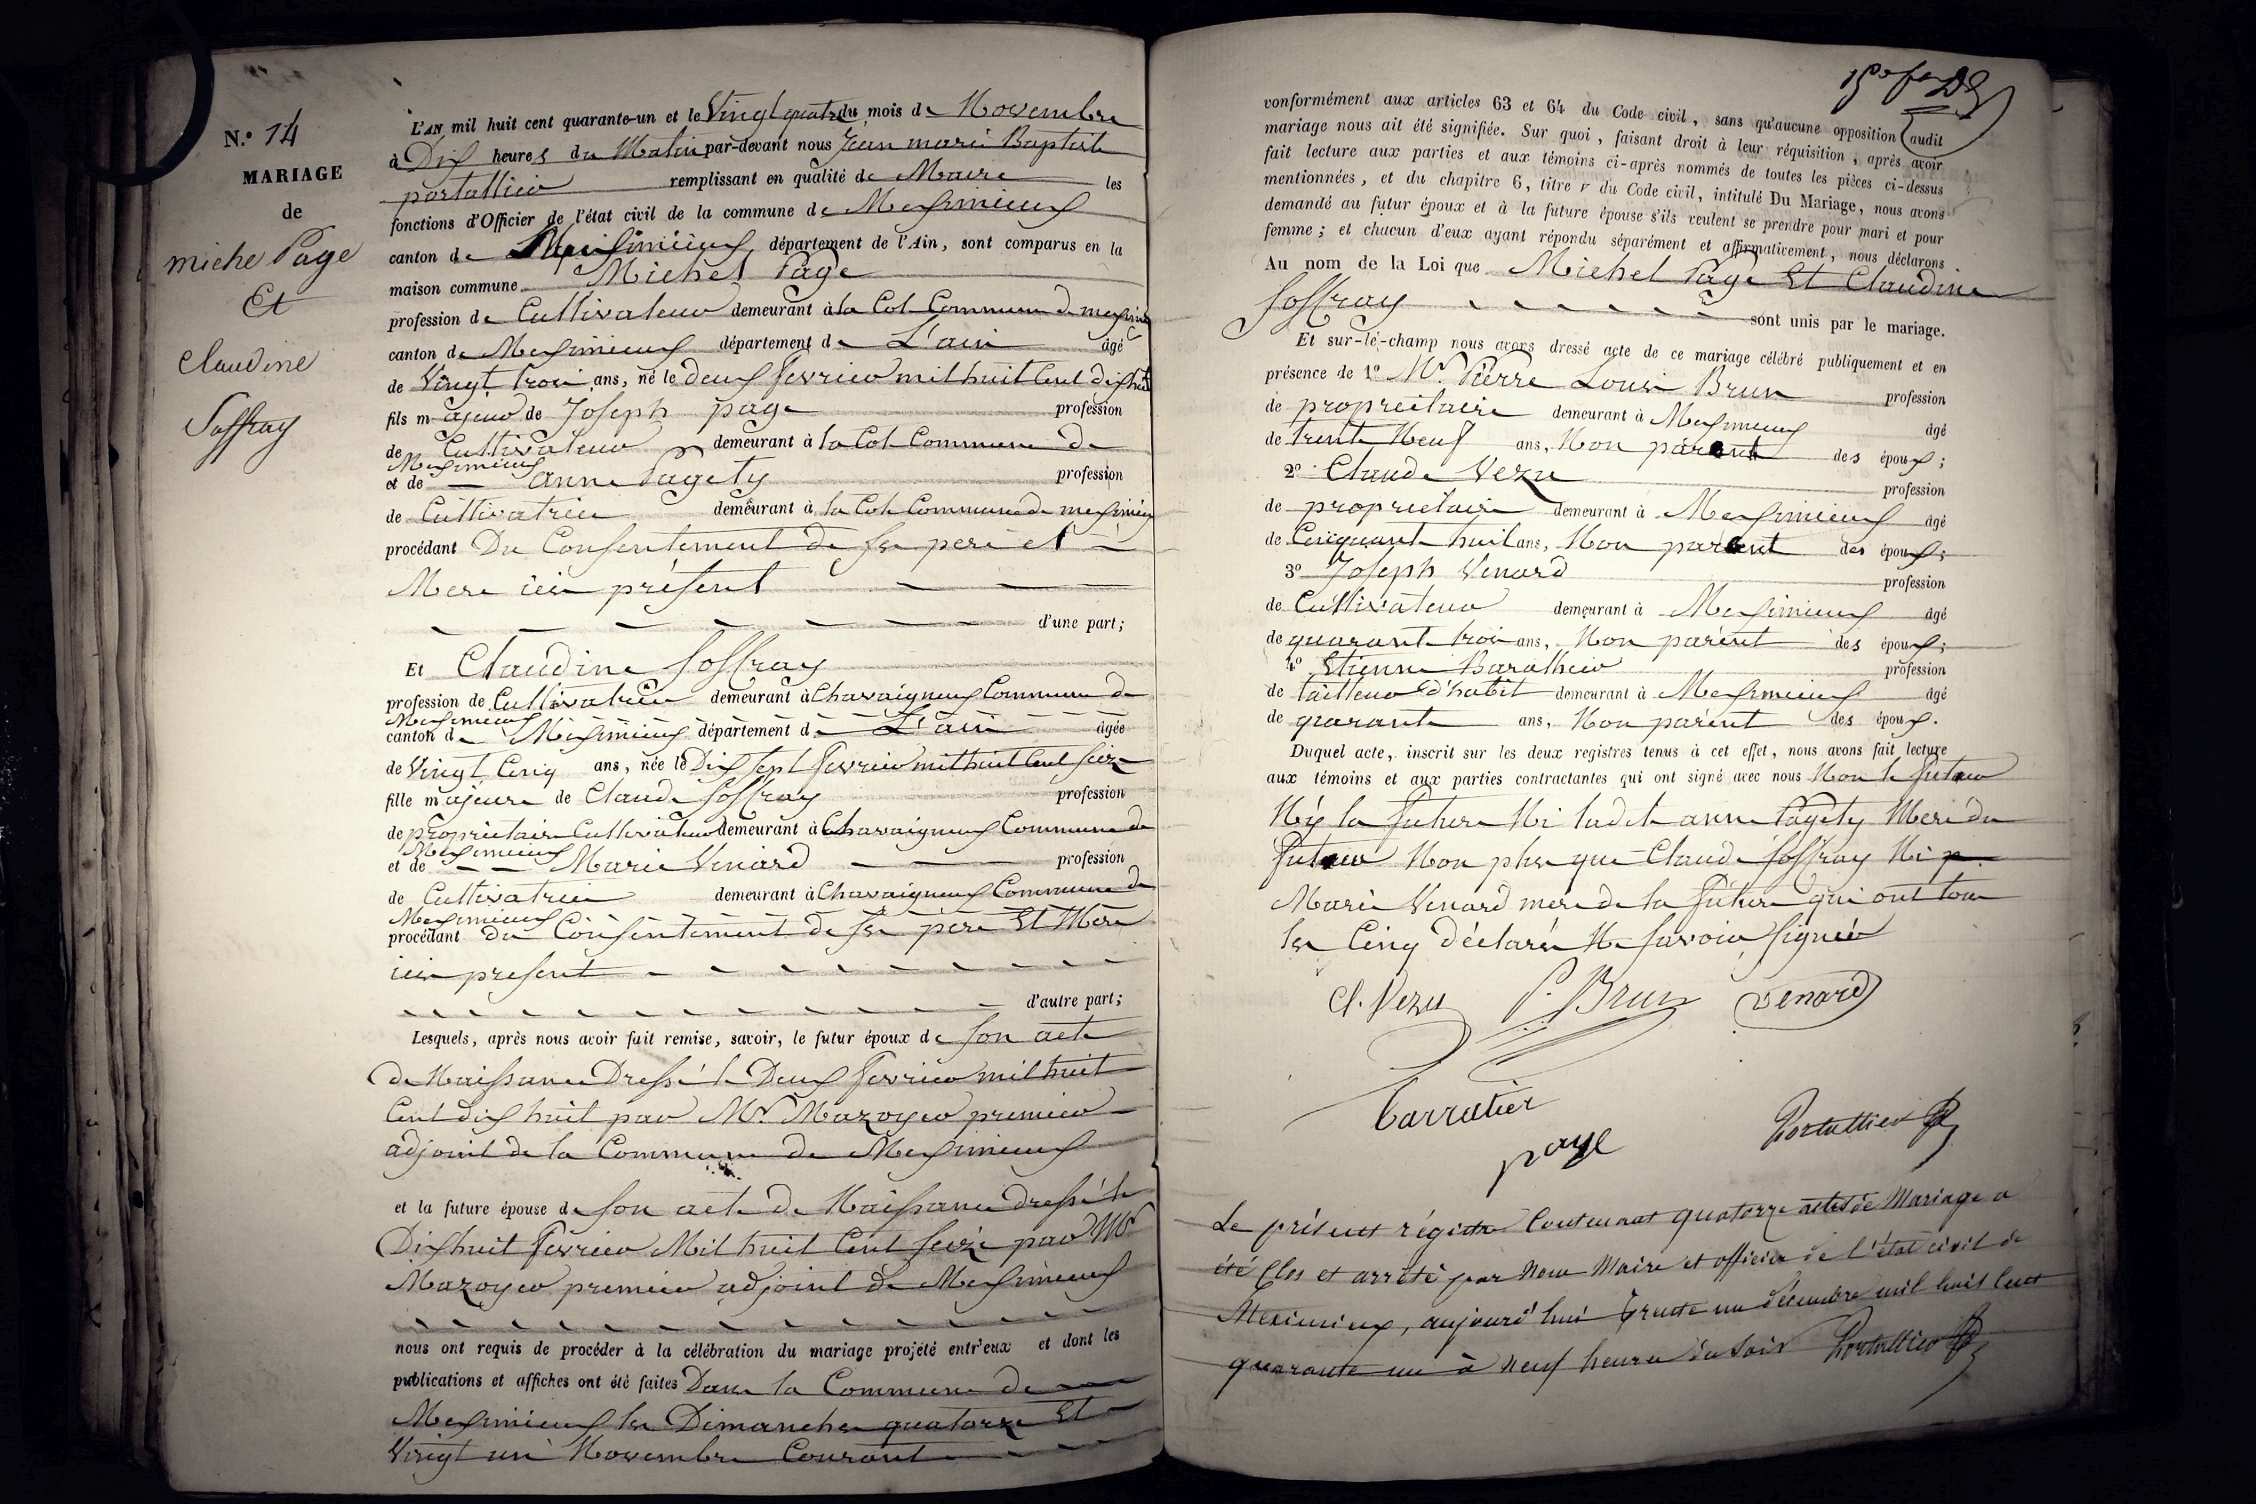 N.o 14
MARIAGE
de
miche Page
Et
Claudine
Soffray
L'AN mil huit cent quarante-un et le Vingt quatre du mois de Novembre
à Dix heures du Matin par-devant nous Jean marie Baptiste
portallier remplissant en qualité de Maire les
fonctions d'Officier de l'état civil de la commune de Meximieux
canton de Meximieux, département de l'Ain, sont comparus en la
maison commune Michel Page
profession de Cultivateur demeurant à la Cot Commune de meximieux
canton de Meximieux département de L'ain âgé
de Vingt trois ans, né le deux fevrier mil huit Cent dix huit
fils majeur de Joseph page profession
de Cultivateur demeurant à la Cot Commune de
Meximieux
et de anne Pagety profession
de Cultivatrice demeurant à la Cote Commune de meximieux
procédant Du Consentement de ses pere et
Mere ici présent
d'une part;
Et Claudine Soffray
profession de Cultivatrice demeurant à Chavaigneux Commune de
Meximieux
canton de Meximieux département de L'ain âgée
de Vingt Cinq ans, née le Dix sept fevrier mil huit Cent seize
fille majeure de Claude Soffray profession
de propriétaire Cultivateur demeurant à Chavaigneux Commune de
Meximieux
et de Marie Venard profession
de Cultivatrice demeurant à Chavaigneux Commune de
Meximieux
procédant du Consentement de ses père Et Mère
ici present
d'autre part;
Lesquels, après nous avoir fait remise, savoir, le futur époux de son acte
de Naissance Dressé le Deux fevrier mil huit
Cent dix huit par Mr. Mazoyer premier
adjoint de la Commune de Meximieux
et la future épouse de son acte de Naissance dressé le
Dix huit fevrier Mil huit Cent seize par Mr
Mazoyer premier adjoint de Meximieux
nous ont requis de procéder à la célébration du mariage projeté entr'eux et dont les
publications et affiches ont été faites Dans la Commune de
Meximieux les Dimanches quatorze Et
Vingt un Novembre Courant
conformément aux articles 63 et 64 du Code civil, sans qu'aucune opposition audit
mariage nous ait été signifiée. Sur quoi, faisant droit à leur réquisition, après avoir
fait lecture aux parties et aux témoins ci-après nommés de toutes les pièces ci-dessus
mentionnées, et du chapitre 6, titre v du Code civil, intitulé Du Mariage, nous avons
demandé au futur époux et à la future épouse s'ils veulent se prendre pour mari et pour
femme; et chacun d'eux ayant répondu séparément et affirmativement, nous déclarons
Au nom de la Loi que Michel Page Et Claudine
Soffray sont unis par le mariage.
Et sur-le-champ nous avons dressé acte de ce mariage célébré publiquement et en
présence de 1o Mr. Pierre Louis Brun profession
de propreitaire demeurant à Meximieux âgé
de trente Neuf ans, Non parent des époux;
2o Claude Vezu profession
de proprietaire demeurant à Meximieux âgé
de Cinquante huit ans, Non parent des époux;
3o Joseph Venard profession
de Cultivateur demeurant à Meximieux âgé
de quarante trois ans, Non parent des époux;
4o Etienne Barathier profession
de tailleur d'habit demeurant à Meximieux âgé
de quarante ans, Non parent des époux.
Duquel acte, inscrit sur les deux registres tenus à cet effet, nous avons fait lecture
aux témoins et aux parties contractantes qui ont signé avec nous Non le futur
Ny la future Ni ladite anne Pagety Mere du
futur Non plus que Claude Soffray Ni
Marie Venard mere de la future qui ont tous
les Cinq déclarés Ne savoir signer
Cl. Vezu P. Brun Venard
Barratier
page
Portallier
Le présent régistre Contenant quatorze actes de Mariage a
été Clos et arrêté par Nous Maire et officier de l'état civil de
Meximieux, aujourd'hui trente un décembre mil huit Cent
quarante un à neuf heures du soir Portallier